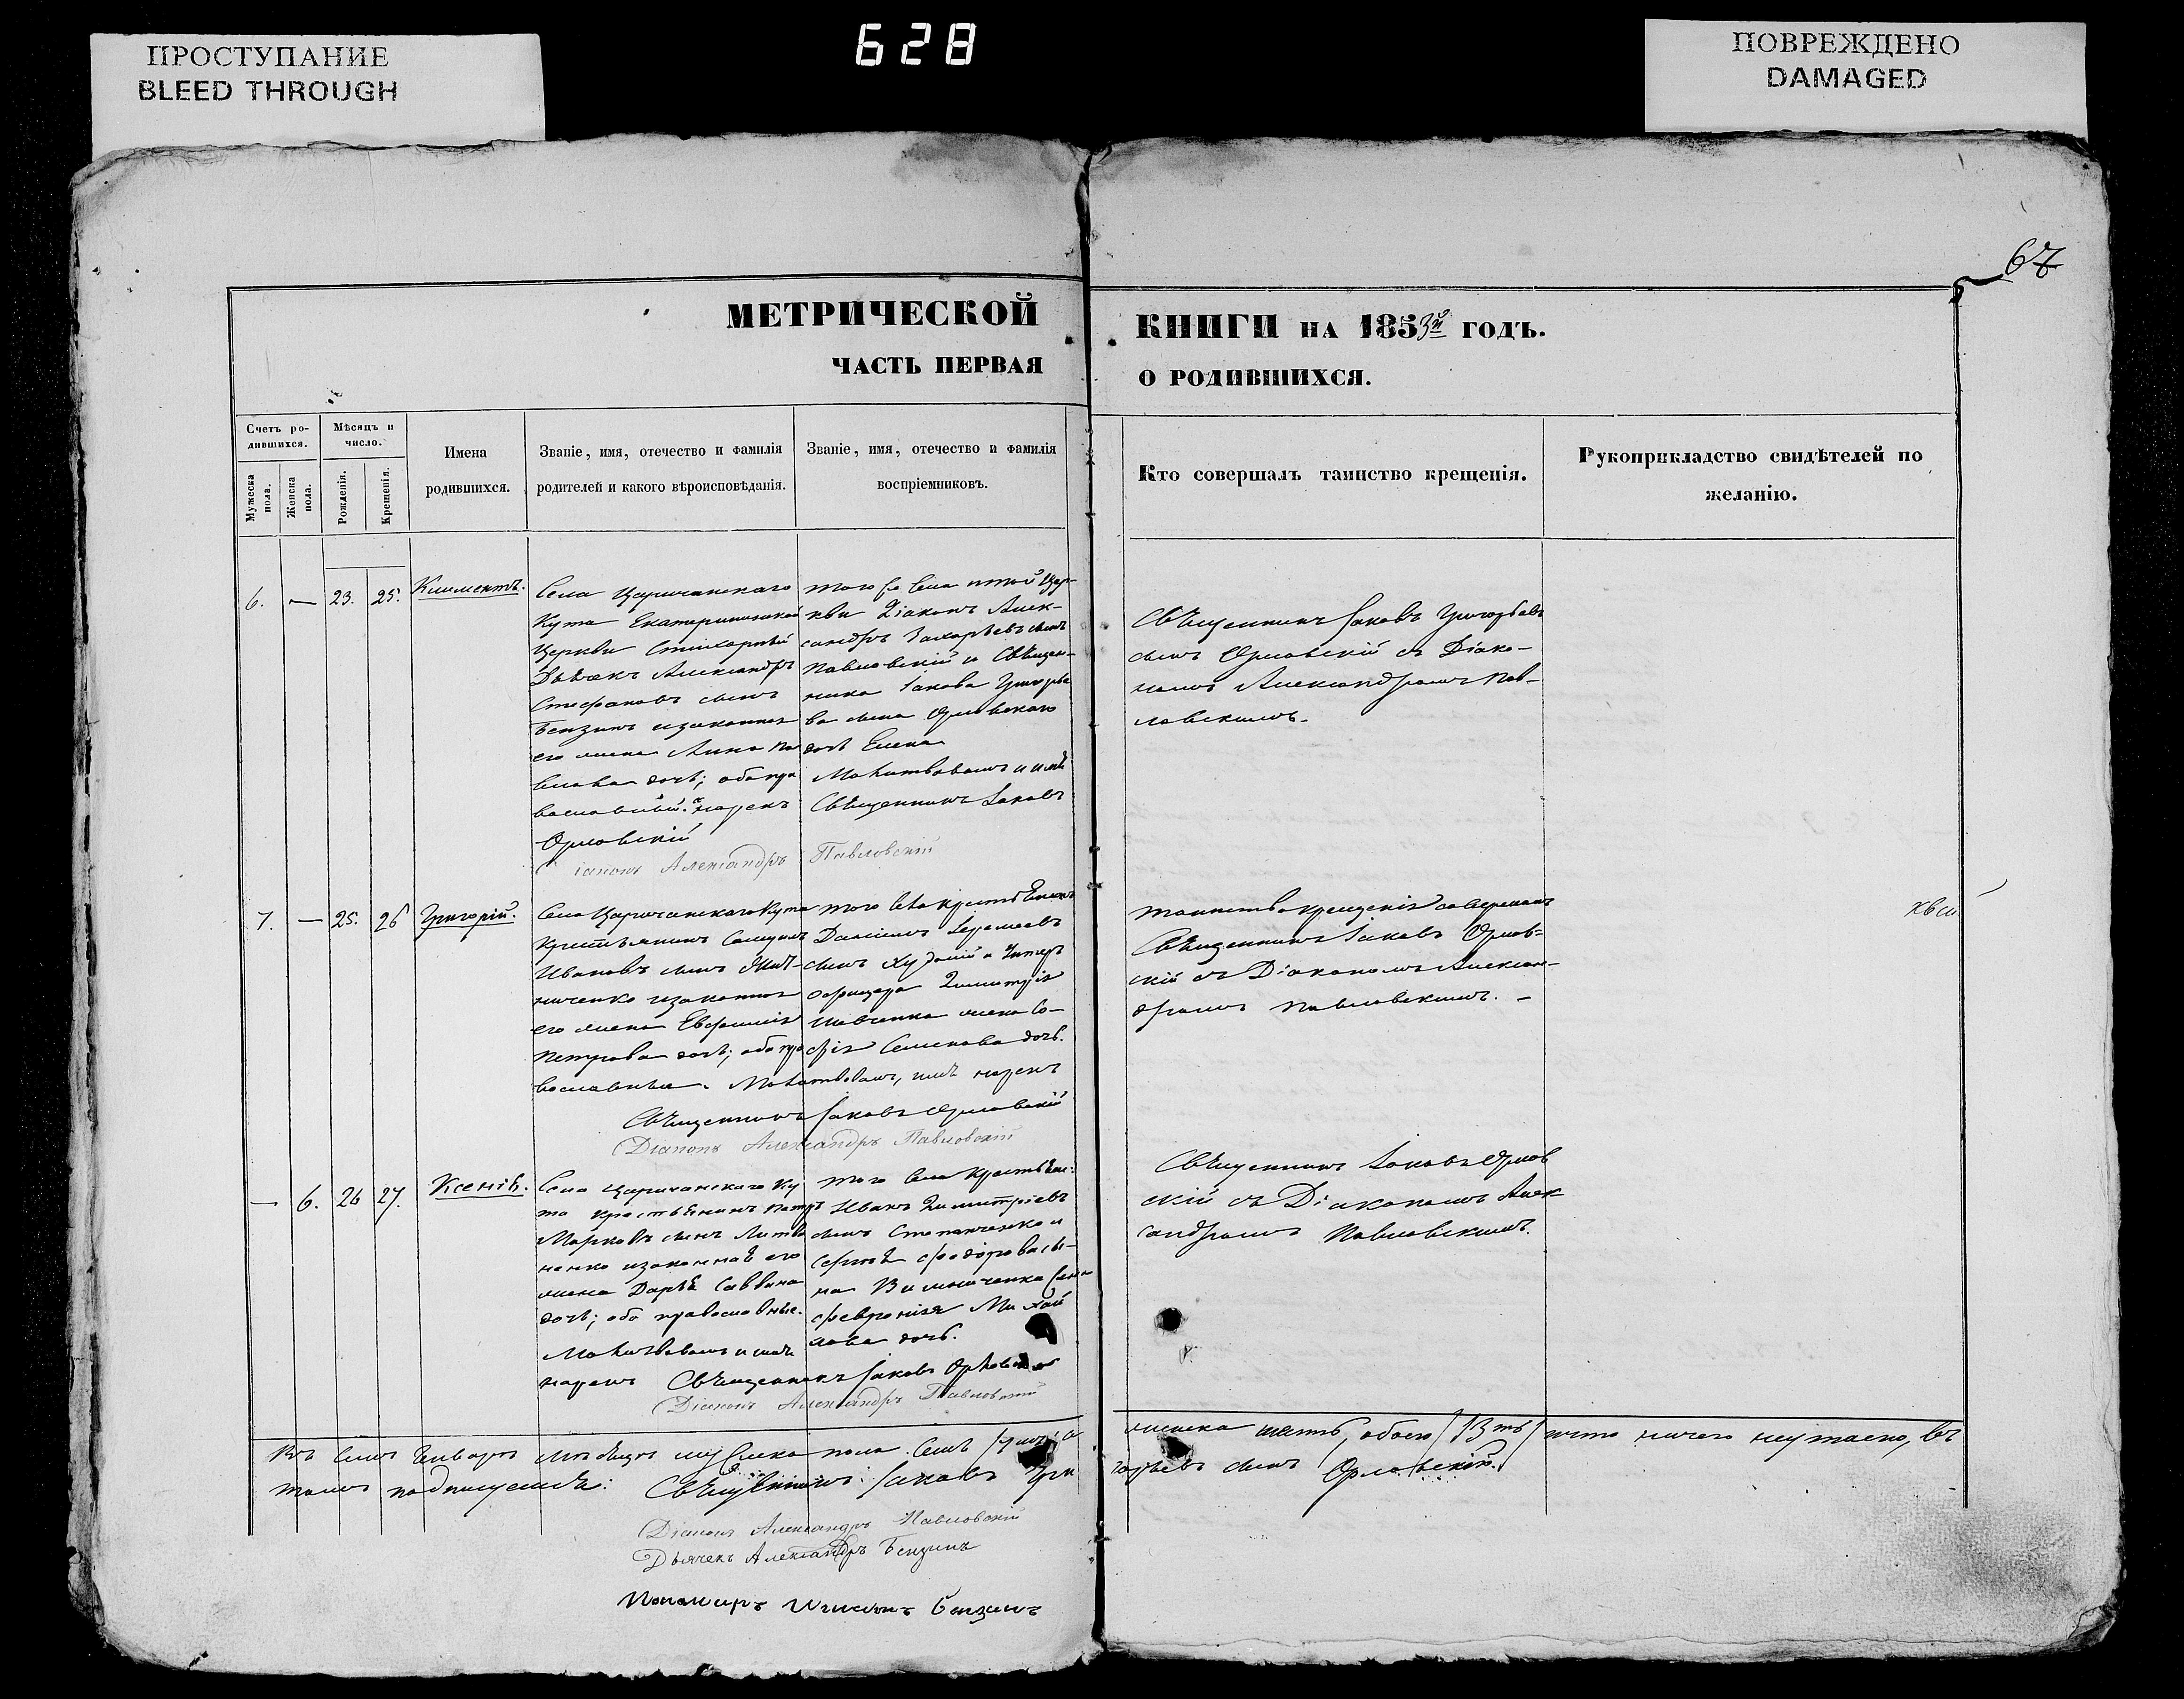 ПРОСТУПАНИЕ
BLEED THROUGH
628
ПОВРЕЖДЕНО
DAMAGED
67
МЕТРИЧЕСКОЙ
ЧАСТЬ ПЕРВАЯ
КНИГИ НА 1853й ГОДЪ.
О РОДИВШИХСЯ.
Счетъ ро-
дившихся.
Мужеска
пола.
Женска
пола.
Мѣсяцъ и
число.
Рожденія.
Крещенія.
Имена
родившихся.
Званіе, имя, отечество и фамилія
родителей и какого вѣроисповѣданія.
Званіе, имя, отечество и фамилія
воспріемниковъ.
Кто совершалъ таинство крещенія.
Рукоприкладство свидѣтелей по
желанію.
6. — 23. 25. Климентъ.
Села Царичанскаго
Кута Екатерининской
Церкви Стихарный
Дьячекъ Александръ
Стефановъ сынъ
Бензинъ и законная
его жена Анна Па
влова дочь; оба пра
вославные. нарекъ
Орловскій
того же села и той Цер-
кви Діаконъ Алек-
сандръ Захарьевъ сынъ
Павловскій и Священ-
ника Іакова Григорье
ва сына Орловскаго
дочь Елена
Молитвовалъ и имя
Священникъ Іаковъ
Діаконъ Александръ Павловскій
Священникъ Іаковъ Григорьевъ
сынъ Орловскій съ Діако-
номъ Александромъ Пав-
ловскимъ.
7. — 25. 26 Григорій.
Села Царичанскаго Кута
Крестьянинъ
Ивановъ сынъ
и законная
его жена Евфимія
Петрова дочь; оба пра
вославные. Молитвовалъ, имя нарекъ
того села
Даніилъ
сынъ и Унтеръ
офицера Димитрія
жена Со-
фія Семенова дочь.
Священникъ Іаковъ Орловскій
Діаконъ Александръ Павловскій
таинство крещенія совершалъ
Священникъ Іаковъ Орлов-
скій съ Діакономъ Алексан-
дромъ Павловскимъ. —
— 6. 26 27. Ксенія.
Села Царичанскаго Ку
та крестьянинъ Петръ
Марковъ сынъ Литви
ненко и законная его
жена Дарья Саввина
дочь; оба православные.
Молитвовалъ и имя
нарекъ Священникъ Іаковъ Орловскій
того села
Иванъ Димитріевъ
сынъ Степанченко и
Сергѣя Федорова сы-
на жена
Февронія Михай
лова дочь.
Діаконъ Александръ Павловскій
Священникъ Іаковъ Орлов
скій съ Діакономъ Алек
сандромъ Павловскимъ.
Въ семъ Январѣ мѣсяцѣ мужеска пола семь женска шесть, обоего 13ть что ничего неутаено, въ
томъ подписуемся: Священникъ Іаковъ Григорьевъ сынъ Орловскій.
Діаконъ Александръ Павловскій
Дьячекъ Александръ Бензинъ
Пономарь Бензинъ